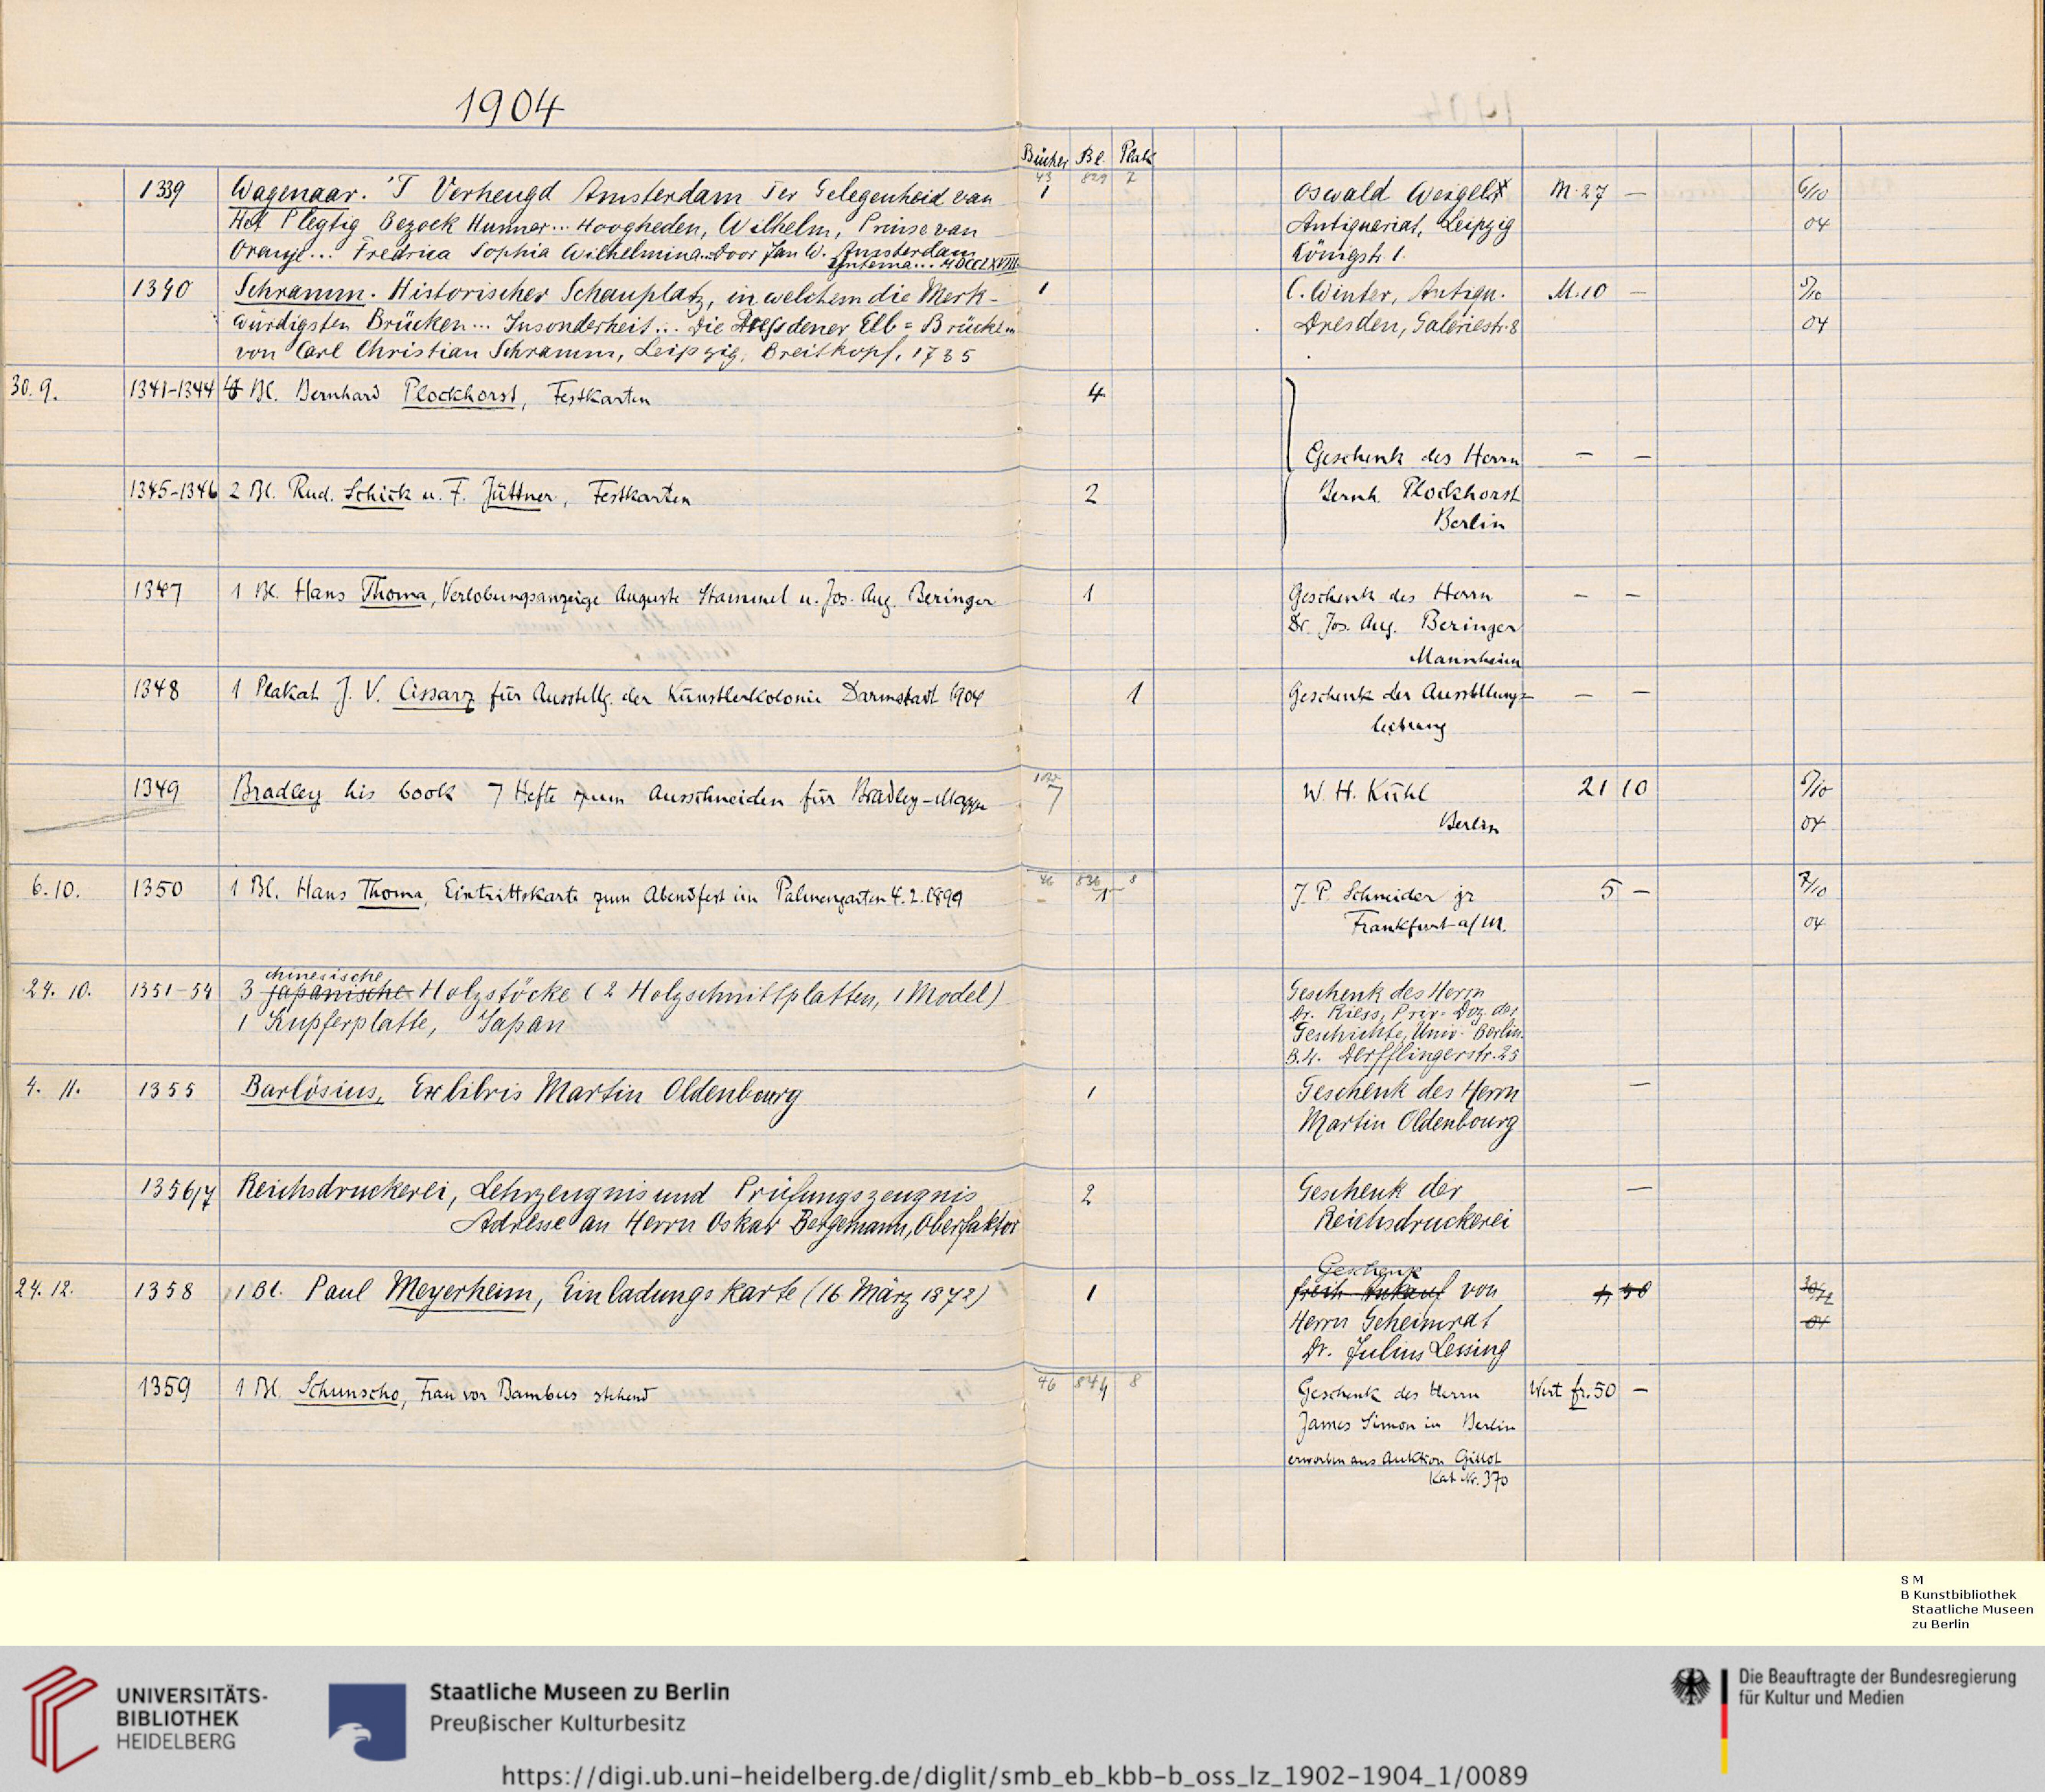 1904
Bücher Bl. Plak
43 829 7
1339 Wagenaar. 'T Verheugd Amsterdam Ter Gelegenheid van 1 Oswald Weigelt M. 27 — 6/10
Het Plegtig Bezoek Hunner... Hoogheden, Wilhelm, Prinse van Antiquariat, Leipzig 04
Oranje... Fredrica Sophia Wilhelmina... Door Jan W. Amsterdam Königstr. 1.
... MDCCLXVIII
1340 Schramm. Historischer Schauplatz, in welchem die Merk- 1 C. Winter, Antiqu. M. 10 — 5/10
würdigsten Brücken... Insonderheit... Die Dressdener Elb=Brücken Dresden, Galeriestr. 8 04
von Carl Christian Schramm, Leipzig, Breitkopf, 1735
30. 9. 1341-1344 4 Bl. Bernhard Plockhorst, Festkarten 4
Geschenk des Herrn — —
1345-1346 2 Bl. Rud. Schick u. F. Jüttner, Festkarten 2 Bernh. Plockhorst
Berlin
1347 1 Bl. Hans Thoma, Verlobungsanzeige Auguste Stammel u. Jos. Aug. Beringer 1 Geschenk des Herrn — —
Dr. Jos. Aug. Beringer
Mannheim
1348 1 Plakat J. V. Cissarz für Ausstellg. der Künstlerkolonie Darmstadt 1904 1 Geschenk der Ausstellungs- — —
leitung
1349 Bradley his book 7 Hefte zum Ausschneiden für Bradley-Mappe 7 W. H. Kühl 21 10 5/10
Berlin 04
46 836 8
6. 10. 1350 1 Bl. Hans Thoma, Eintrittskarte zum Abendfest im Palmengarten 4. 2. 1899 1 J. P. Schneider jr 5 — 7/10
Frankfurt a/M. 04
chinesische
24. 10. 1351-54 3 japanische Holzstöcke (2 Holzschnittplatten, 1 Model) Geschenk des Herrn
1 Kupferplatte, Japan Dr. Riess, Priv-Doz. der
Geschichte, Univ. Berlin.
Derfflingerstr. 25
4. 11. 1355 Barlösius, Exlibris Martin Oldenbourg 1 Geschenk des Herrn —
Martin Oldenbourg
1356/7 Reichsdruckerei, Lehrzeugnis und Prüfungszeugnis 2 Geschenk der —
Adresse an Herrn Oskar Bergemann, Oberfaktor Reichsdruckerei
Geschenk
24. 12. 1358 1 Bl. Paul Meyerheim, Einladungskarte (16 März 1872) 1 von 50
Herrn Geheimrat 04
Dr. Julius Lessing
46 844 8
1359 1 Bl. Schunscho, Frau vor Bambus stehend Geschenk des Herrn Wert fr. 50 —
James Simon in Berlin
erworben aus Auktion Gillot
Kat Nr. 370
S M
B Kunstbibliothek
Staatliche Museen
zu Berlin
UNIVERSITÄTS-
BIBLIOTHEK
HEIDELBERG
Staatliche Museen zu Berlin
Preußischer Kulturbesitz
Die Beauftragte der Bundesregierung
für Kultur und Medien
https://digi.ub.uni-heidelberg.de/diglit/smb_eb_kbb-b_oss_lz_1902-1904_1/0089